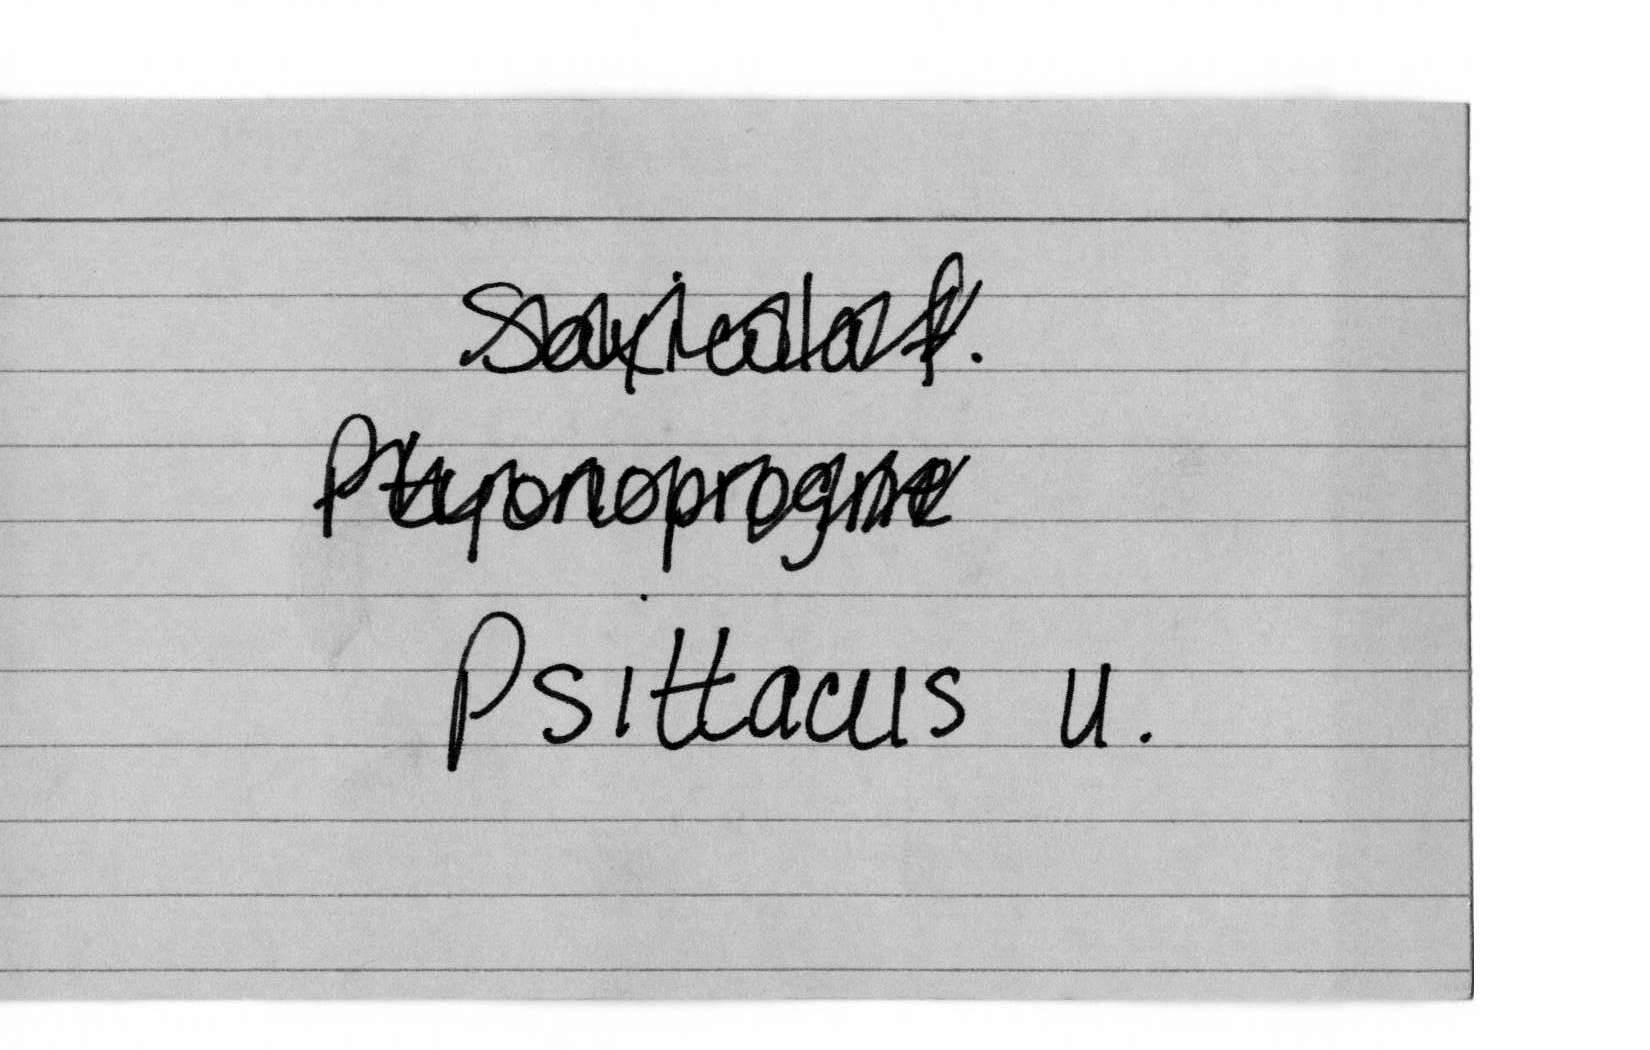 Saxicola f.
Ptyonoprogne
Psittacus u.